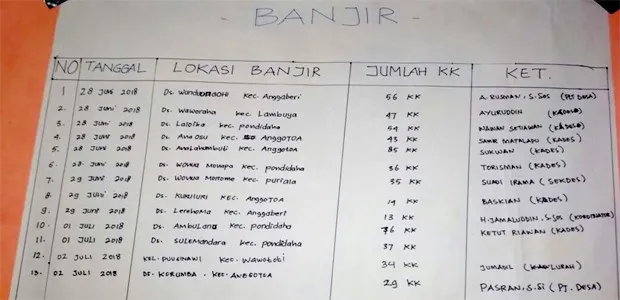 - BANJIR -
NO TANGGAL LOKASI BANJIR JUMLAH KK KET.
1 28 Juni 2018 Ds. Kec. Anggaberi 56 KK A. RUSMAN, S.Sos (PJ. DESA)
2. 28 Juni 2018 Ds. Waworaha kec. Lambuya 47 KK AYURUDDIN (KADES)
3. 28 Juni 2018 Ds. Laloika kec. pondidaha 54 KK WAWAN SETIAWAN (KADES)
4. 28 Juni 2018 Ds. Ana Osu kec. ANGGOTOA 43 KK
5. 28 Juni 2018 Ds. AnaLahumbuti kec. Anggotoa 85 KK SUKWAN (KADES)
6. 28 Juni 2018 Ds. Wowua Monapa kec. pondidaha 36 KK TORISMAN (KADES)
7. 29 Juni 2018 Ds. Wonua Morome kec. puriala 35 KK SUADI IRAMA (SEKDES)
8. 29 Juni 2018 Ds. KEC. ANGGOTOA 19 KK BASKIAN (KADES)
9. 29 Juni 2018 Ds. Lerehoma kec. Anggaberi 13 KK H. JAMALUDDIN, S.Sos
10. 01 JULI 2018 Ds. AMBULANO kec. pondidaha 76 KK KETUT RIAWAN (KADES)
11. 01 JULI 2018 Ds. SULEMANDARA kec. pondidaha 37 KK
12. 02 JULI 2018 KEL. PUUSINAWI KEC. WAWOTOBI 34 KK JUMADIL
13. 02 JULI 2018 DS. KORUMBA. KEC. ANGGOTOA 29 KK PASRAN, S.Si (PJ. DESA)